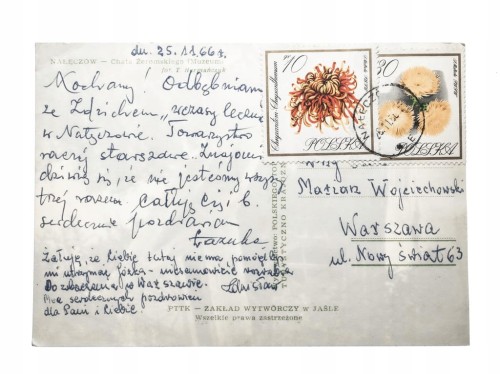 dn. 25.11.66 r.
NAŁĘCZÓW — Chata Żeromskiego (Muzeum)
fot. T.
Kochany! Odbębniam
ze Zdzichem „wczasy leczn.
w Nałęczowie. Towarzystwo
raczej starsze. Znajomi
dziwią się że nie jesteśmy wszys
trzej razem. Całuję Cię i b.
serdecznie pozdrawiam
Żałuję, że Ciebie tutaj nie ma, pomógłbyś
mi utrzymać
Do zobaczenia w Warszawie.
Moc serdecznych pozdrowień
dla Pani i Ciebie
Zdzisław
PTTK — ZAKŁAD WYTWÓRCZY W JAŚLE
Wszelkie prawa zastrzeżone
POLSKIEGO
TURYSTYCZNO KRAJOZN
10
Chrysanthemum
POLSKA
30
POLSKA
NAŁĘCZÓW
Mariarz Wojciechowski
Warszawa
ul. Nowy Świat 63